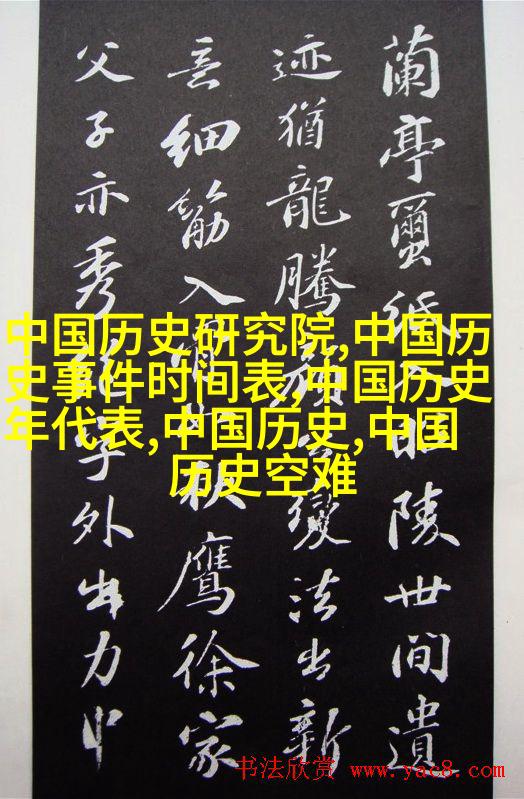 中国历史研究院,中国历
史事件时间表,中国历史
年代表,中国历史,中国
历史空难
蘭亭蠒紙入昭陵世間遺
迹猶龍騰顏公變法出新
意細筋入骨如秋鷹徐家
父子亦秀絕字外出力中
书法欣赏 www.yac8.com